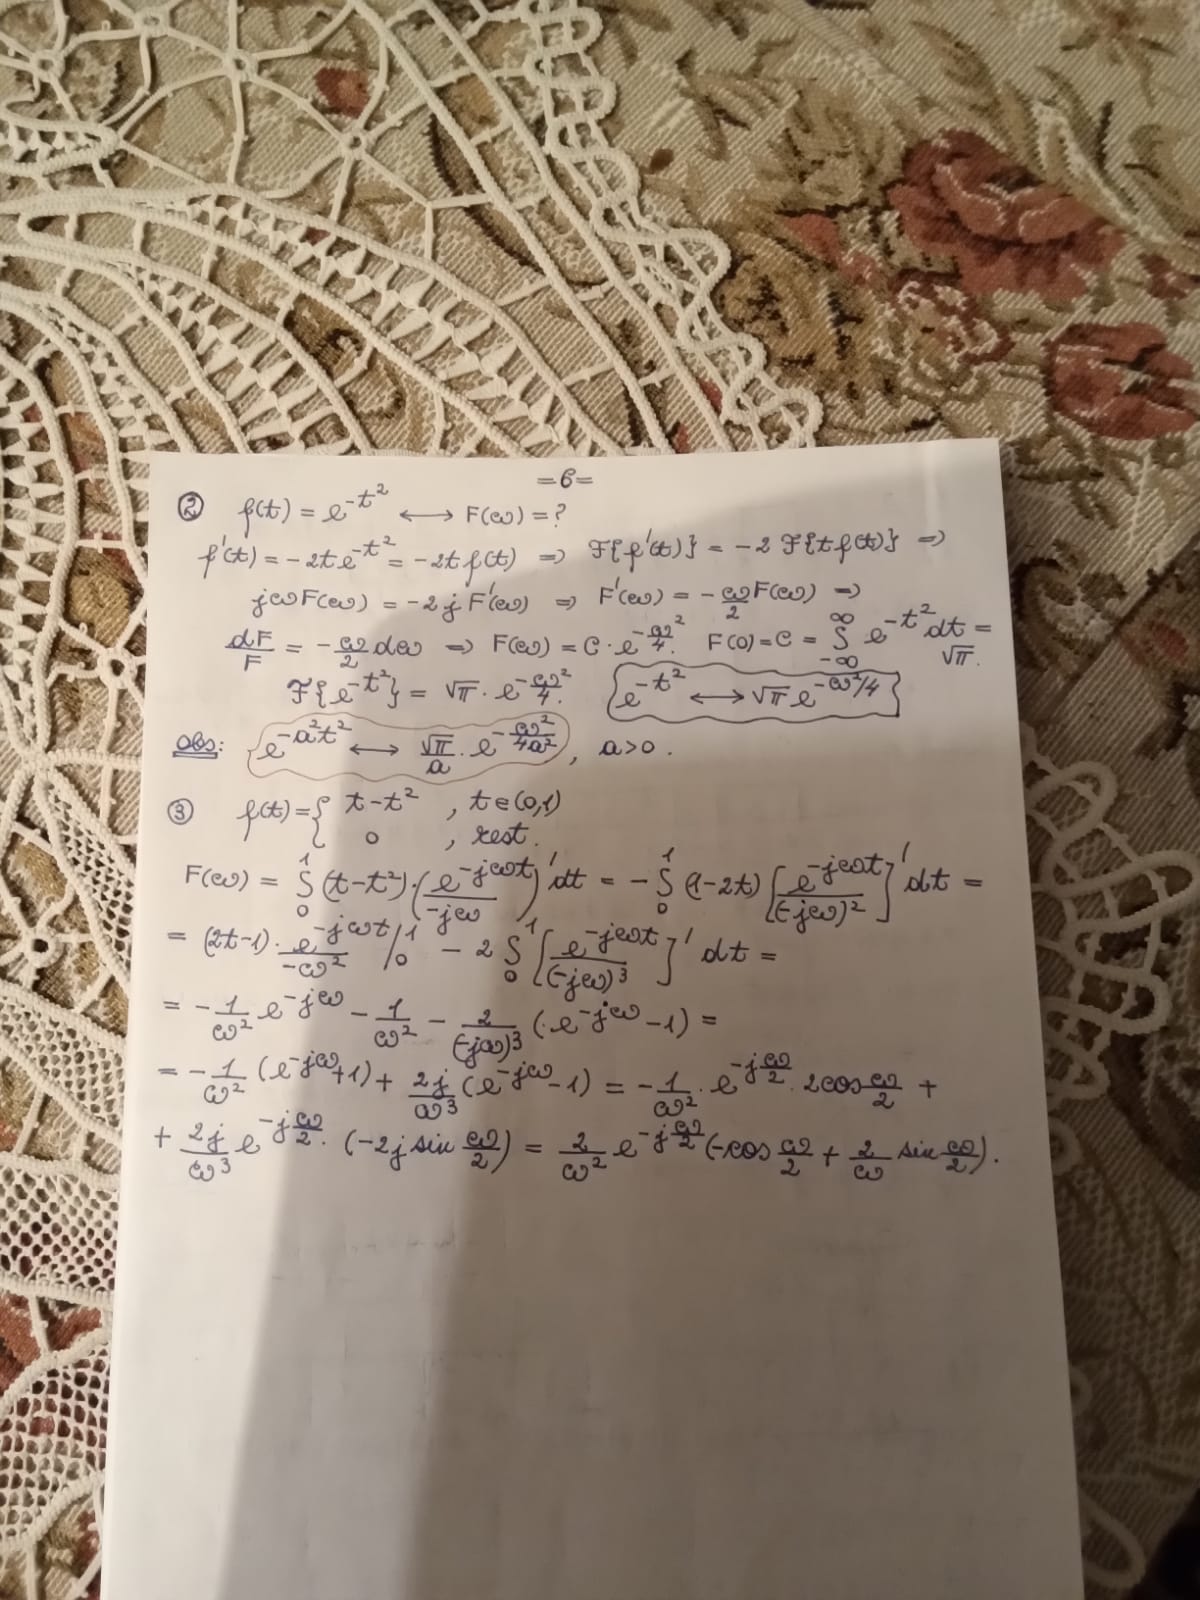 =6=
② f(t) = e^{-t²} ⟷ F(ω) = ?
f'(t) = -2t e^{-t²} = -2t f(t) ⇒ F{f'(t)} = -2 F{t f(t)} ⇒
jωF(ω) = -2j F'(ω) ⇒ F'(ω) = -ω/2 F(ω) ⇒
dF/F = -ω/2 dω ⇒ F(ω) = C · e^{-ω²/4}. F(0) = C = ∫_{-∞}^{∞} e^{-t²} dt = √π.
F{e^{-t²}} = √π · e^{-ω²/4}. e^{-t²} ⟷ √π e^{-ω²/4}
Obs: e^{-a²t²} ⟷ √π/a · e^{-ω²/4a²}, a>0.
③ f(t) = { t-t² , t∈(0,1)
0 , rest.
F(ω) = ∫_0^1 (t-t²)·(e^{-jωt}/-jω)' dt = -∫_0^1 (1-2t) [e^{-jωt}/(-jω)²]' dt =
= (2t-1)· e^{-jωt}/-ω² /_0^1 - 2 ∫_0^1 [e^{-jωt}/(-jω)³]' dt =
= -1/ω² e^{-jω} - 1/ω² - 2/(-jω)³ (·e^{-jω} - 1) =
= -1/ω² (e^{-jω}+1) + 2j/ω³ (e^{-jω} - 1) = -1/ω² · e^{-jω/2} · 2cos ω/2 +
+ 2j/ω³ e^{-jω/2} · (-2j sin ω/2) = 2/ω² e^{-jω/2} (-cos ω/2 + 2/ω sin ω/2).